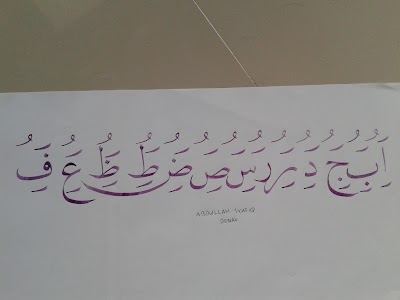 ا ب ج د ر ر س ص ض ط ظ ع ف
ABDULLAH SYAFIQ